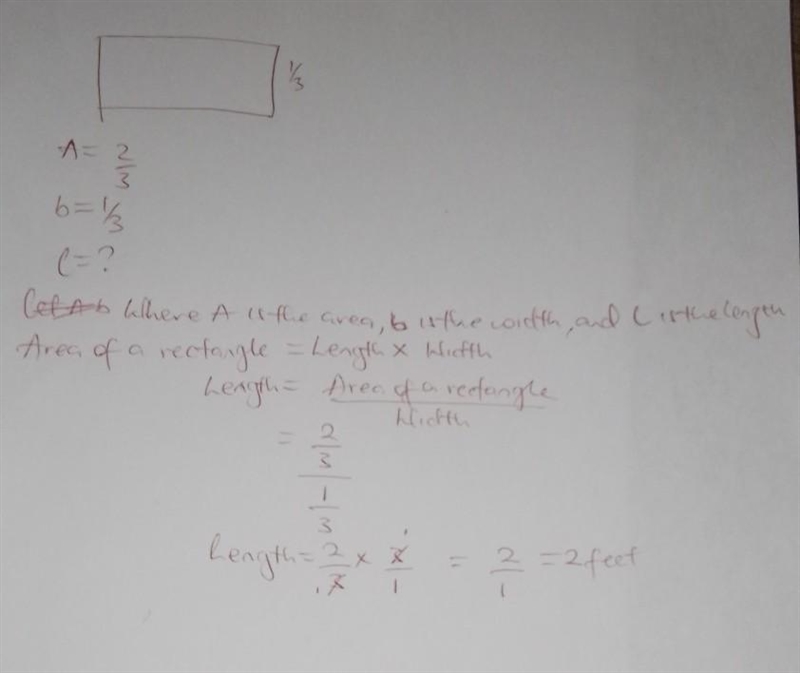 1/3
A = 2/3
b = 1/3
l = ?
Let A b Where A is the area, b is the width, and L is the length
Area of a rectangle = Length × Width
Length = Area of a rectangle / Width
= 2/3 / 1/3
Length = 2/3 × 3/1 = 2/1 = 2 feet